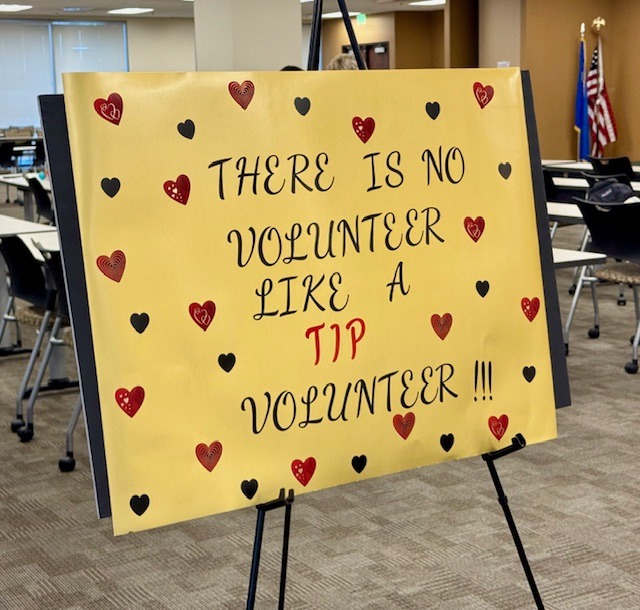 THERE IS NO
VOLUNTEER
LIKE A
TIP
VOLUNTEER !!!